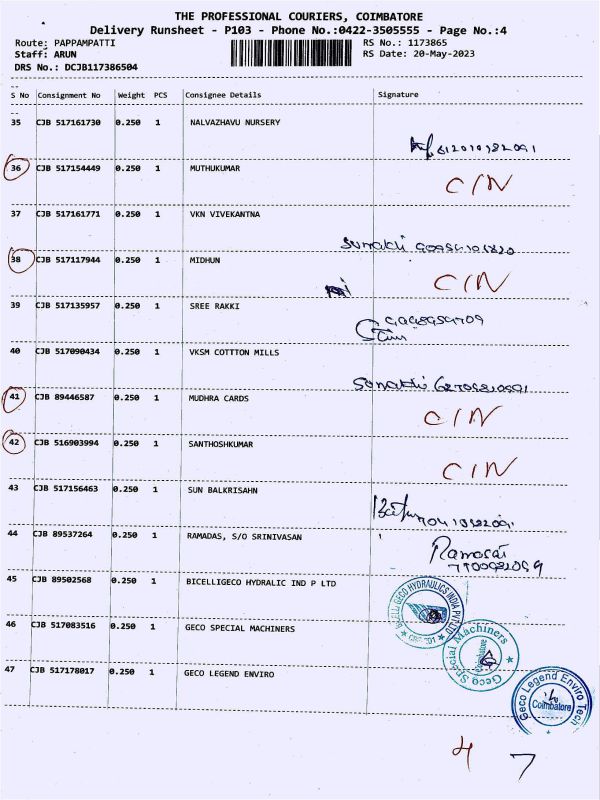 THE PROFESSIONAL COURIERS, COIMBATORE
Delivery Runsheet - P103 - Phone No.:0422-3505555 - Page No.:4
Route: PAPPAMPATTI
RS No.: 1173865
Staff: ARUN
RS Date: 20-May-2023
DRS No.: DCJB117386504
S No Consignment No Weight PCS Consignee Details Signature
35 CJB 517161730 0.250 1 NALVAZHAVU NURSERY
36 CJB 517154449 0.250 1 MUTHUKUMAR C/N
37 CJB 517161771 0.250 1 VKN VIVEKANTNA
38 CJB 517117944 0.250 1 MIDHUN C/N
39 CJB 517135957 0.250 1 SREE RAKKI
40 CJB 517090434 0.250 1 VKSM COTTTON MILLS
41 CJB 89446587 0.250 1 MUDHRA CARDS C/N
42 CJB 516903994 0.250 1 SANTHOSHKUMAR C/N
43 CJB 517156463 0.250 1 SUN BALKRISAHN
44 CJB 89537264 0.250 1 RAMADAS, S/O SRINIVASAN
45 CJB 89502568 0.250 1 BICELLIGECO HYDRALIC IND P LTD
46 CJB 517083516 0.250 1 GECO SPECIAL MACHINERS
Geco Special Machiners
Coimbatore
47 CJB 517178017 0.250 1 GECO LEGEND ENVIRO
Geco Legend Enviro Tech
Coimbatore
4 7